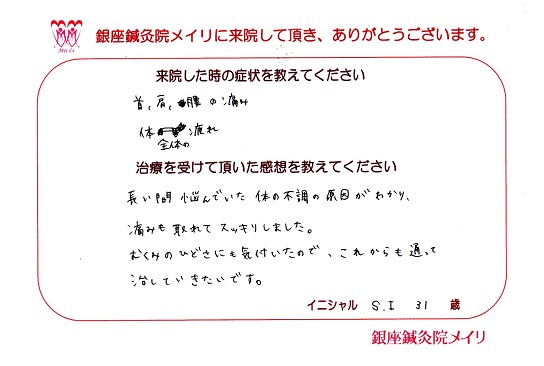 Mei Li
銀座鍼灸院メイリに来院して頂き、ありがとうございます。
来院した時の症状を教えてください
首、肩、腰の痛み
体 疲れ
全体の
治療を受けて頂いた感想を教えてください
長い間 悩んでいた 体の不調の原因がわかり、
痛みも取れてスッキリしました。
むくみのひどさにも気付いたので、これからも通って
治していきたいです。
イニシャル S.I 31 歳
銀座鍼灸院メイリ